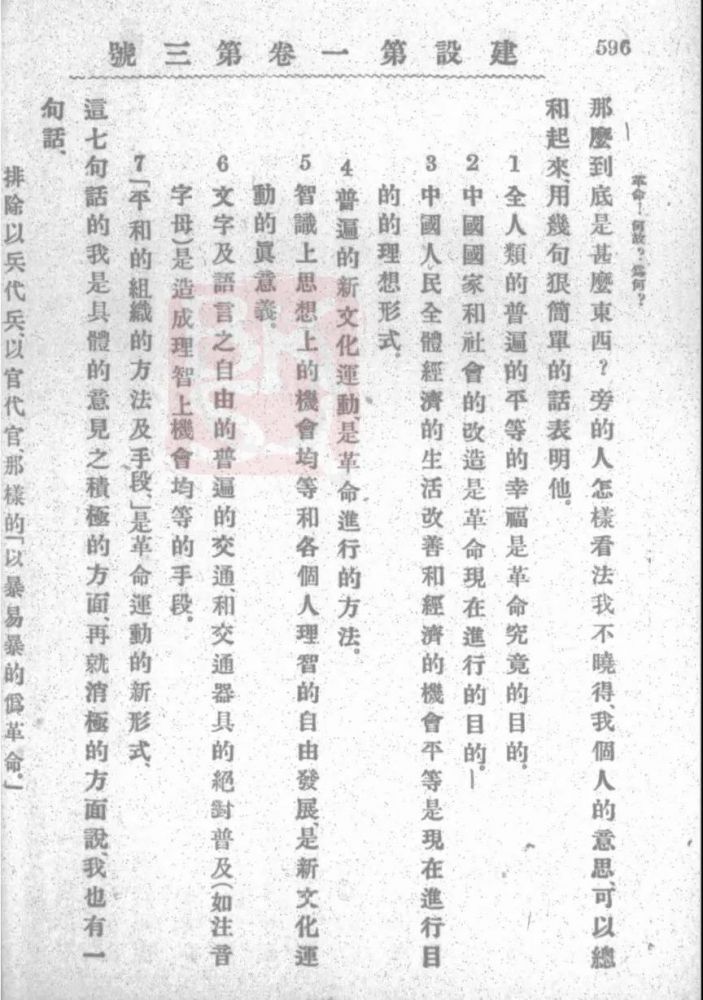 596
建設第一卷第三號
革命！何故？爲何？
那麼到底是甚麼東西？旁的人怎樣看法我不曉得、我個人的意思、可以總
和起來、用幾句狠簡單的話表明他。
1 全人類的普遍的平等的幸福是革命究竟的目的。
2 中國國家和社會的改造是革命現在進行的目的。
3 中國人民全體經濟的生活改善和經濟的機會平等是現在進行目
的的理想形式。
4 普遍的新文化運動、是革命進行的方法。
5 智識上思想上的機會均等和各個人理智的自由發展、是新文化運
動的眞意義。
6 文字及語言之自由的普遍的交通、和交通器具的絕對普及（如注音
字母）是造成理智上機會均等的手段。
7 「平和的組織的方法及手段、」是革命運動的新形式、
這七句話的我是具體的意見之積極的方面、再就消極的方面說、我也有一
句話、
排除以兵代兵、以官代官、那樣的「以暴易暴的僞革命。」